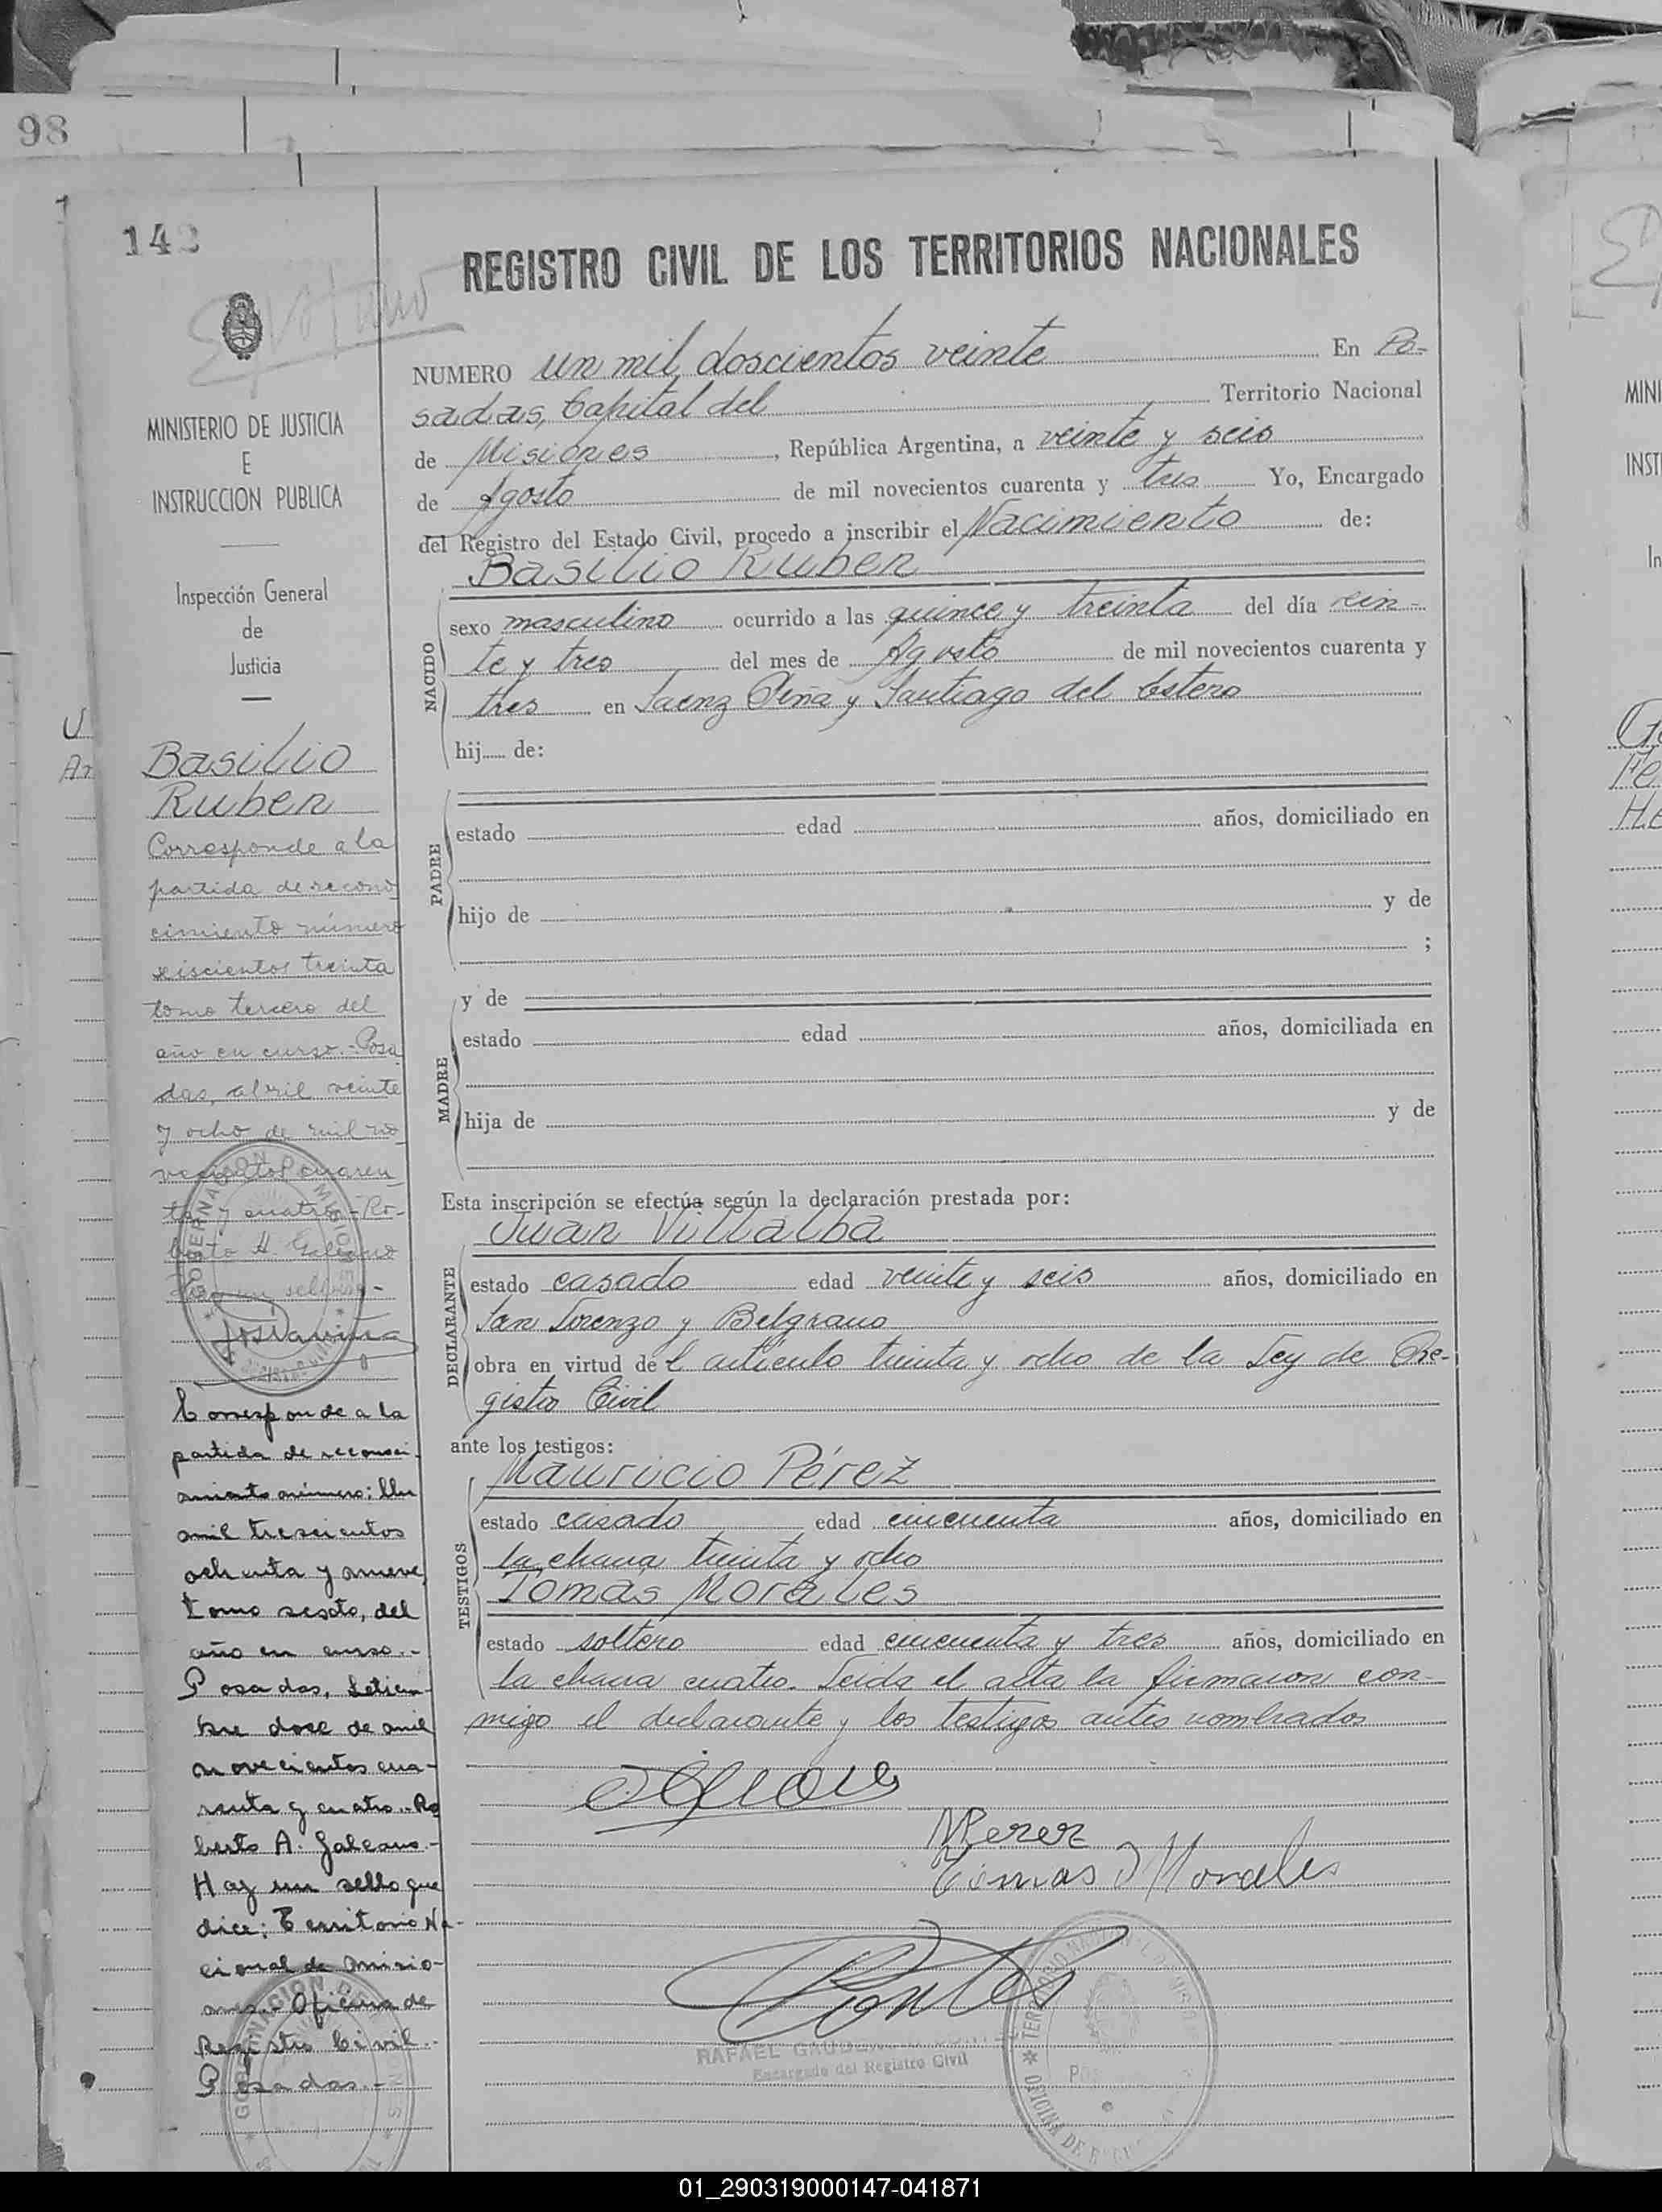 98
142
REGISTRO CIVIL DE LOS TERRITORIOS NACIONALES
MINISTERIO DE JUSTICIA
E
INSTRUCCION PUBLICA
Inspección General
de
Justicia
Basilio
Ruben
Corresponde a la
partida de recono
cimiento número
seiscientos treinta
tomo tercero del
año en curso.- Posa
das, abril veinte
y ocho de mil no
vecientos cuaren
ta y cuatro - Ro-
berto A. Galeano
Corresponde a la
partida de reconoci-
miento número: Un
mil trescientos
ochenta y nueve,
tomo sexto, del
año en curso.-
Posadas, Setiem-
bre doce de mil
novecientos cua-
renta y cuatro.- Ro
berto A. Galeano.-
Hay un sello que
dice: Territorio Na-
cional de Misio-
nes.- Oficina de
Registro Civil.-
Posadas.-
NUMERO un mil doscientos veinte En Po-
sadas, Capital del Territorio Nacional
de Misiones, República Argentina, a veinte y seis
de Agosto de mil novecientos cuarenta y tres Yo, Encargado
del Registro del Estado Civil, procedo a inscribir el Nacimiento de:
Basilio Ruben
NACIDO
sexo masculino ocurrido a las quince y treinta del día vein-
te y tres del mes de Agosto de mil novecientos cuarenta y
tres en Saenz Peña y Santiago del Estero
hij de:
PADRE
estado edad años, domiciliado en
hijo de y de
;
MADRE
y de
estado edad años, domiciliada en
hija de y de
Esta inscripción se efectúa según la declaración prestada por:
DECLARANTE
Juan Villalba
estado casado edad veinte y seis años, domiciliado en
San Lorenzo y Belgrano
obra en virtud del artículo treinta y ocho de la Ley de Re-
gistro Civil
ante los testigos:
TESTIGOS
Mauricio Pérez
estado casado edad cincuenta años, domiciliado en
la chacra treinta y ocho
Tomás Morales
estado soltero edad cincuenta y tres años, domiciliado en
la chacra cuatro. Leida el acta la firmaron con-
migo el declarante y los testigos antes nombrados
MPerez
Tomas Morales
RAFAEL
Encargado del Registro Civil
MINI
INSTI
In
01_290319000147-041871